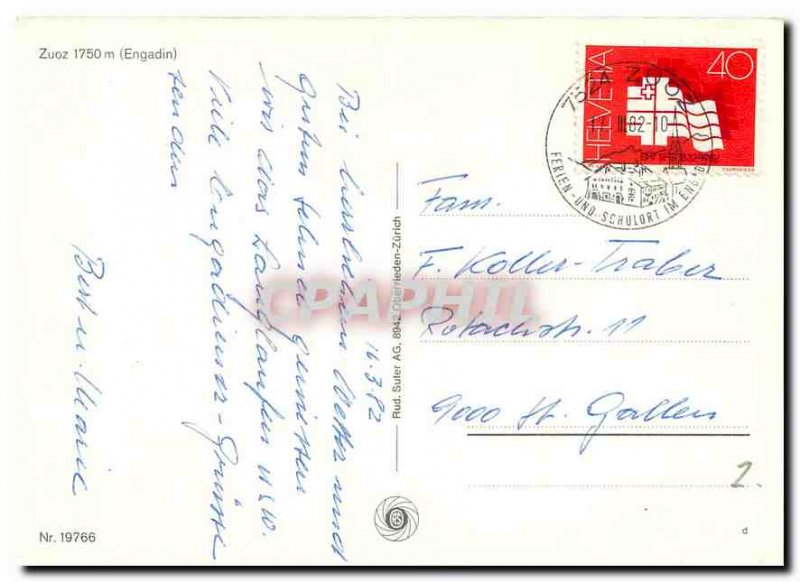 Zuoz 1750 m (Engadin)
16.3.82
Bei herrlichem Wetter und
gutem Schnee geniessen
wir das Langlaufen usw.
Viele Engadiner-Grüsse
senden
Bert u. Marie
Nr. 19766
Rud. Suter AG, 8942 Oberrieden-Zürich
CPAPHIL
HELVETIA
40
1832-1982
COURVOISIER
7524 ZUOZ
17. III. 82-10
FERIEN-UND-SCHULORT IM ENGADIN
Fam.
F. Koller-Traber
Rotachstr. 11
9000 St. Gallen
2.
d